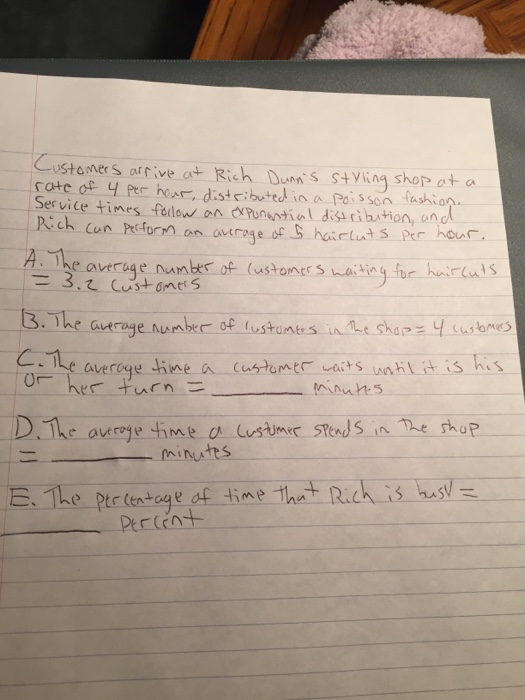 Customers arrive at Rich Dunn's styling shop at a
rate of 4 per hour, distributed in a Poisson fashion.
Service times follow an exponential distribution, and
Rich can perform an average of 5 haircuts per hour.
A. The average number of customers waiting for haircuts
= 3.2 customers
B. The average number of customers in the shop = 4 customers
C. The average time a customer waits until it is his
or her turn = ________ minutes
D. The average time a customer spends in the shop
= ________ minutes
E. The percentage of time that Rich is busy =
________ percent